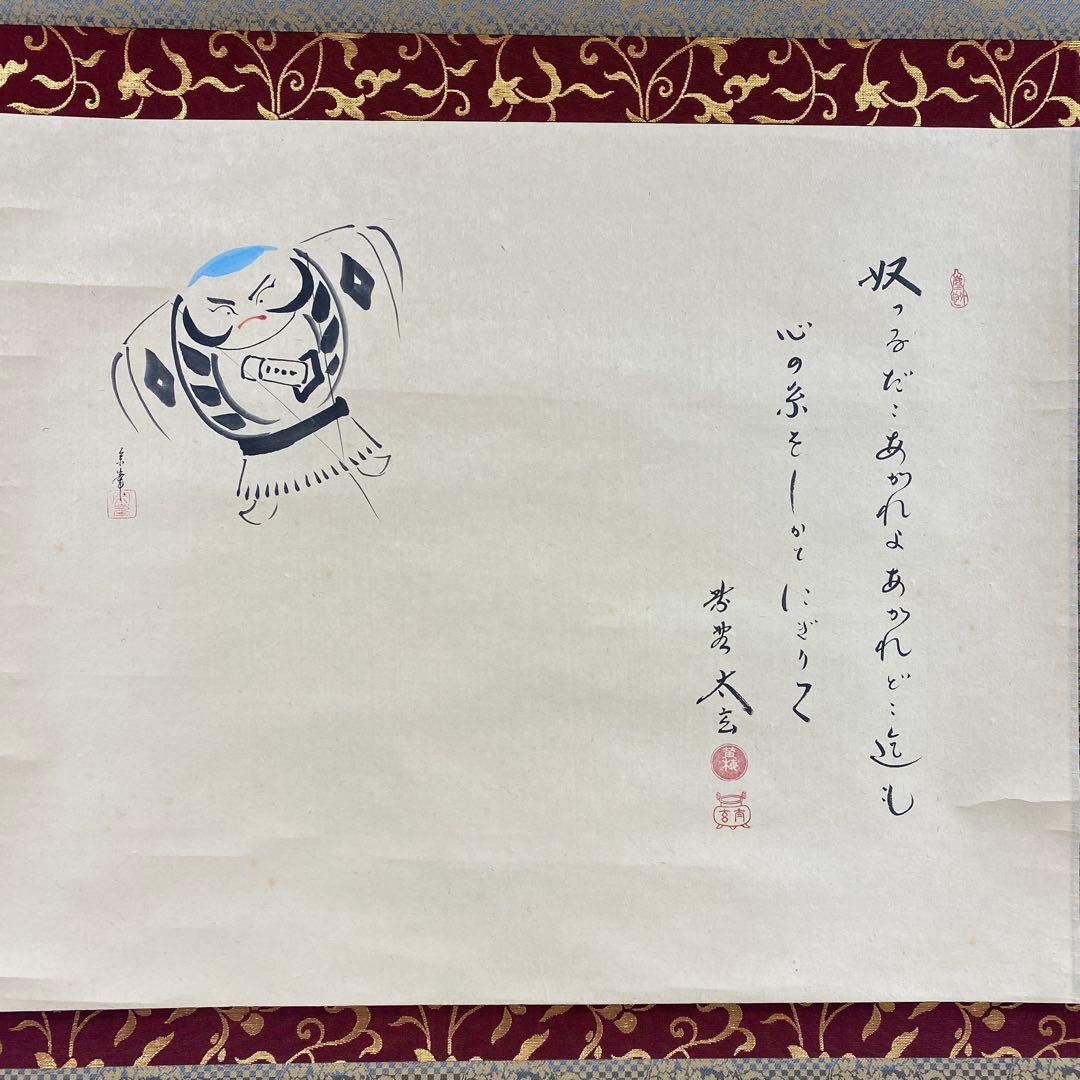 奴つるだこあがれよあがれどこ迄も
心の糸をしかとにぎりて
太玄
黄梅
太玄